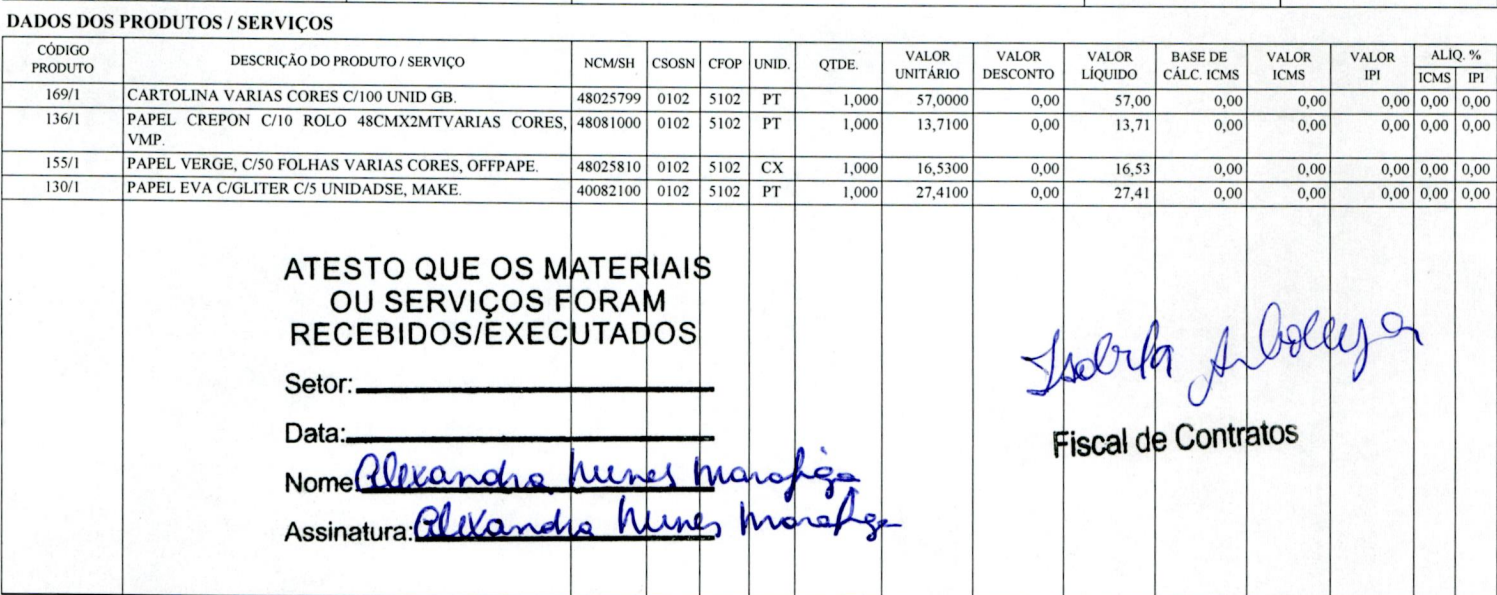 DADOS DOS PRODUTOS / SERVIÇOS
CÓDIGO PRODUTO DESCRIÇÃO DO PRODUTO / SERVIÇO NCM/SH CSOSN CFOP UNID. QTDE. VALOR UNITÁRIO VALOR DESCONTO VALOR LÍQUIDO BASE DE CÁLC. ICMS VALOR ICMS VALOR IPI ALÍQ. % ICMS IPI
169/1 CARTOLINA VARIAS CORES C/100 UNID GB. 48025799 0102 5102 PT 1,000 57,0000 0,00 57,00 0,00 0,00 0,00 0,00 0,00
136/1 PAPEL CREPON C/10 ROLO 48CMX2MTVARIAS CORES, 48081000 0102 5102 PT 1,000 13,7100 0,00 13,71 0,00 0,00 0,00 0,00 0,00
VMP.
155/1 PAPEL VERGE, C/50 FOLHAS VARIAS CORES, OFFPAPE. 48025810 0102 5102 CX 1,000 16,5300 0,00 16,53 0,00 0,00 0,00 0,00 0,00
130/1 PAPEL EVA C/GLITER C/5 UNIDADSE, MAKE. 40082100 0102 5102 PT 1,000 27,4100 0,00 27,41 0,00 0,00 0,00 0,00 0,00
ATESTO QUE OS MATERIAIS
OU SERVIÇOS FORAM
RECEBIDOS/EXECUTADOS
Setor:
Data:
Nome Alexandra Nunes Marafiga
Assinatura: Alexandra Nunes Marafiga
Fiscal de Contratos